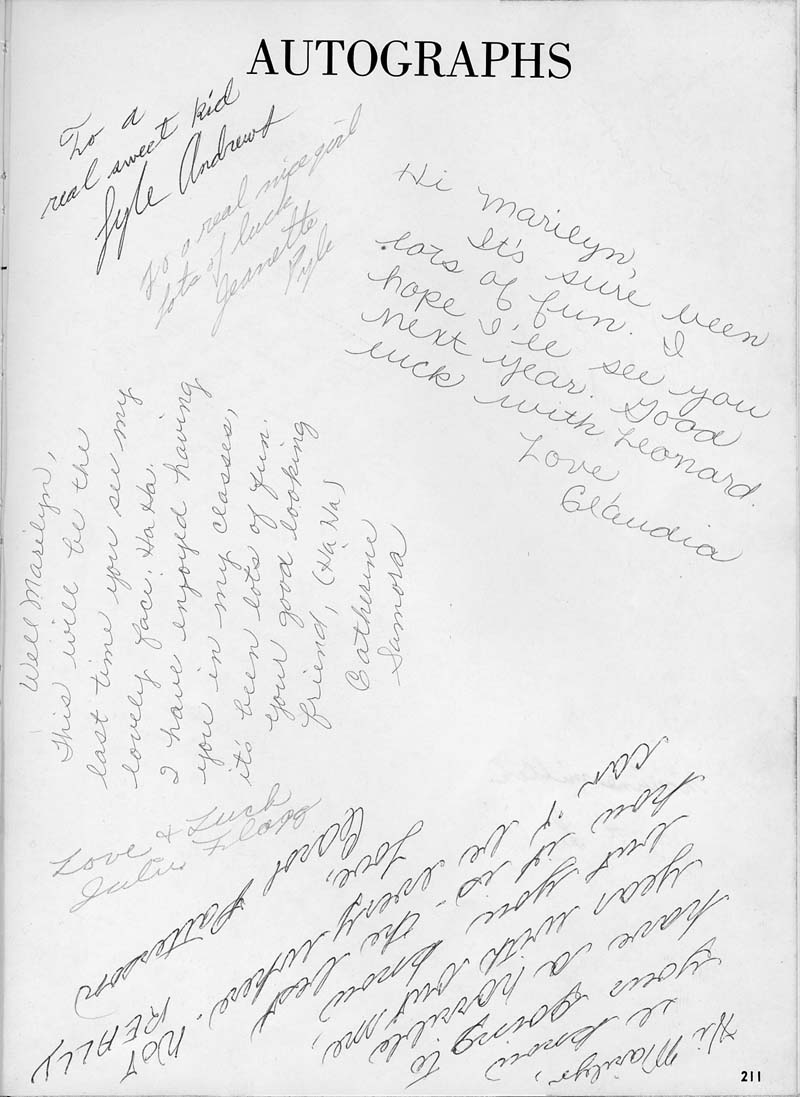 AUTOGRAPHS
To a
real sweet kid
Lyle Andrews
To a real nice girl
lots of luck
Jeanette
Pyle
Hi Marilyn,
It's sure been
lots of fun. I
hope I'll see you
next year. Good
luck with Leonard.
Love
Claudia
Well Marilyn,
This will be the
last time you see my
lovely face. Ha Ha.
I have enjoyed having
you in my classes,
it's been lots of fun.
your good looking
friend, (Ha Ha)
Catherine
Samora
Love & Luck
Julie
Hi Marilyn,
I know
your going to
have a horrible
year with out me,
but you know
how it is - the best
can't be every where. NOT REALLY
Love,
Carol Patterson
211